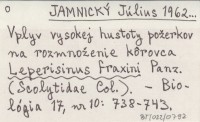 o JAMNICKÝ Július 1962...
Vplyv vysokej hustoty požerkov
na rozmnoženie kôrovca
Leperisinus fraxini Panz.
(Scolytidae Col.). - Bio-
lógia 17, nr 10: 738-743.